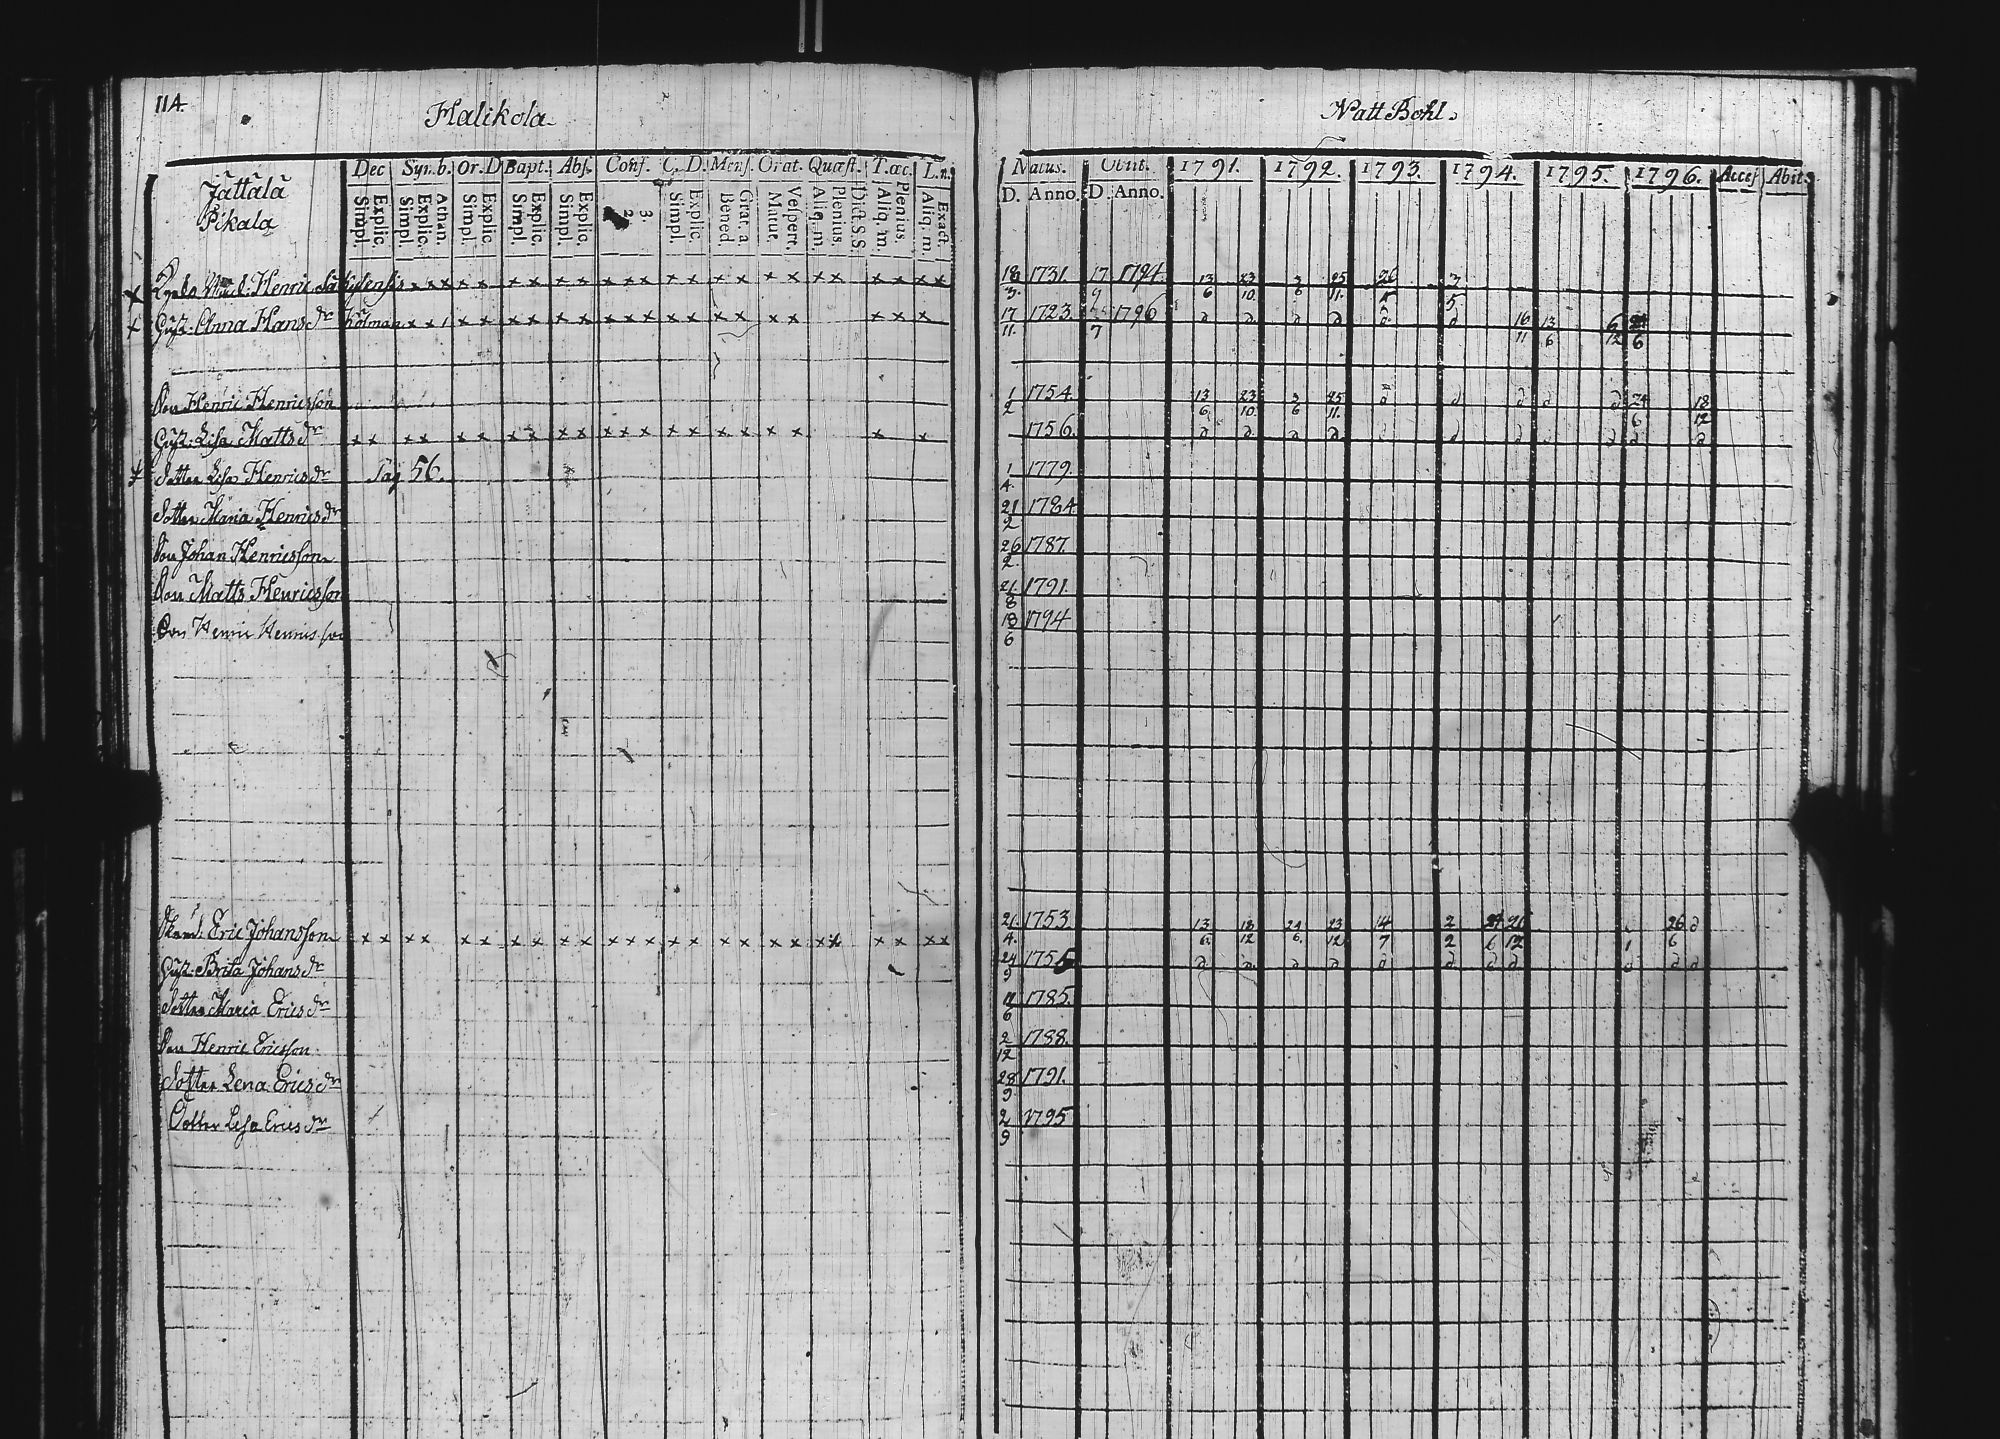 114.
Halikola.
Natt Bohl.
Jättälä
Pikala
Dec Symb. Or. D Bapt. Abs. Conf. C. D. Mens. Orat. Quæst. T.œc. L.n.
Simpl. Explic. Simpl. Explic. Athan. Simpl. Explic. Simpl. Explic. Simpl. Explic. 2 3 Simpl. Explic. Bened. Grat. a Matut. Vespert. Aliq. m. Plenius. Dict. S.S. Aliq. m. Plenius. Aliq. m. Exact.
Natus. Obiit. 1791. 1792. 1793. 1794. 1795. 1796. Acces Abit
D. Anno. D. Anno.
Henric x x x x x x x x x x x x x x x x x x x x x 18 1731. 17 1794. 13 23 3 25 26 3
3. 9 6 10. 6 11. 5
Hust. Anna Hans dr x x x x x x x x x x x x x x x x x x x 17 1723. 1796 d d d d d d 16 13 6
11. 7 11 6 12 6
Son Henric Henricsson 1 1754. 13 23 3 25 d d d d d 24 18
2 6 10. 6 11. 6 12
Hust. Lisa Matts dr x x x x x x x x x x x x x x x x x x x 1756. d d d d d d d d d
Dotter Lisa Henrics dr Pag 56. 1 1779.
4.
Dotter Maria Henrics dr 21 1784
2
Son Johan Henricsson 26 1787.
2
Son Matts Henricsson 21 1791.
8
Son Henric Henricsson 18 1794
6
Eric Johansson x x x x x x x x x x x x x x x x x x x x x x x 21 1753. 13 18 24 23 14 2 24 26 26 d
4. 6 12 6 12 7 2 6 12 1 6
Hust. Brita Johans dr 24 175 d d d d d d d d d d d
9
Dotter Maria Erics dr 1785.
6
Son Henric Ericsson 2 1788.
12
Dotter Lena Erics dr 28 1791.
9
Dotter Lisa Erics dr 2 1795
9